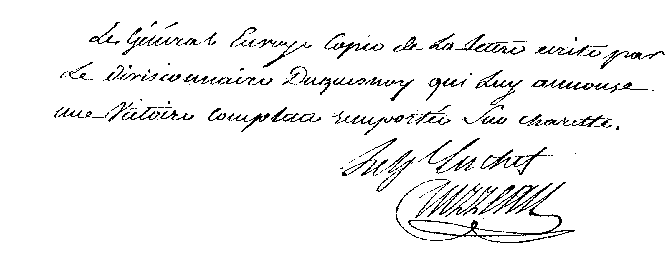 Le Général Envoye Copie de La Lettre écrite par
Le divisionnaire Duquesnoy qui Luy annonse
une Victoire Complaite remportée Sur charette.